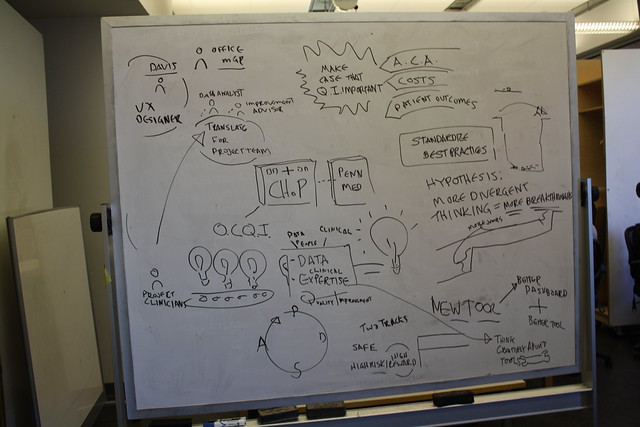 DAVIS
OFFICE
MGR
UX
DESIGNER
DATA ANALYST
IMPROVEMENT
ADVISOR
TRANSLATE
FOR
PROJECT TEAM
MAKE
CASE THAT
QI IMPORTANT
A.C.A.
COSTS
PATIENT OUTCOMES
STANDARDIZE
BEST PRACTICES
CHOP
PENN
MED
HYPOTHESIS:
MORE DIVERGENT
THINKING = MORE BREAKTHROUGHS
O.C.Q.I.
DATA CLINICAL
PEOPLE
- DATA
CLINICAL
- EXPERTISE
QUALITY IMPROVEMENT
PROJECT
CLINICIANS
P
D
S
A
TWO TRACKS
SAFE
HIGH RISK/HIGH
REWARD
NEW TOOL
BETTER
DASHBOARD
+
BETTER TOOL
THINK
CREATIVELY ABOUT
TOOLS